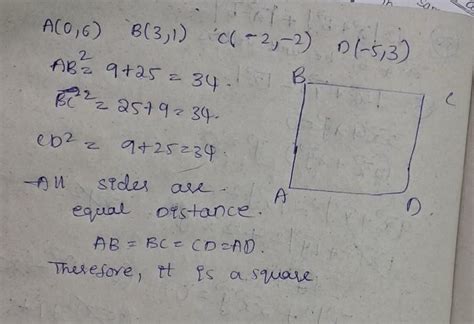 A(0,6) B(3,1) C(-2,-2) D(-5,3)
AB² = 9+25 = 34.
BC² = 25+9 = 34.
CD² = 9+25=34
All sides are
equal Distance.
AB = BC = CD = AD.
Therefore, it is a square
B
C
A
D